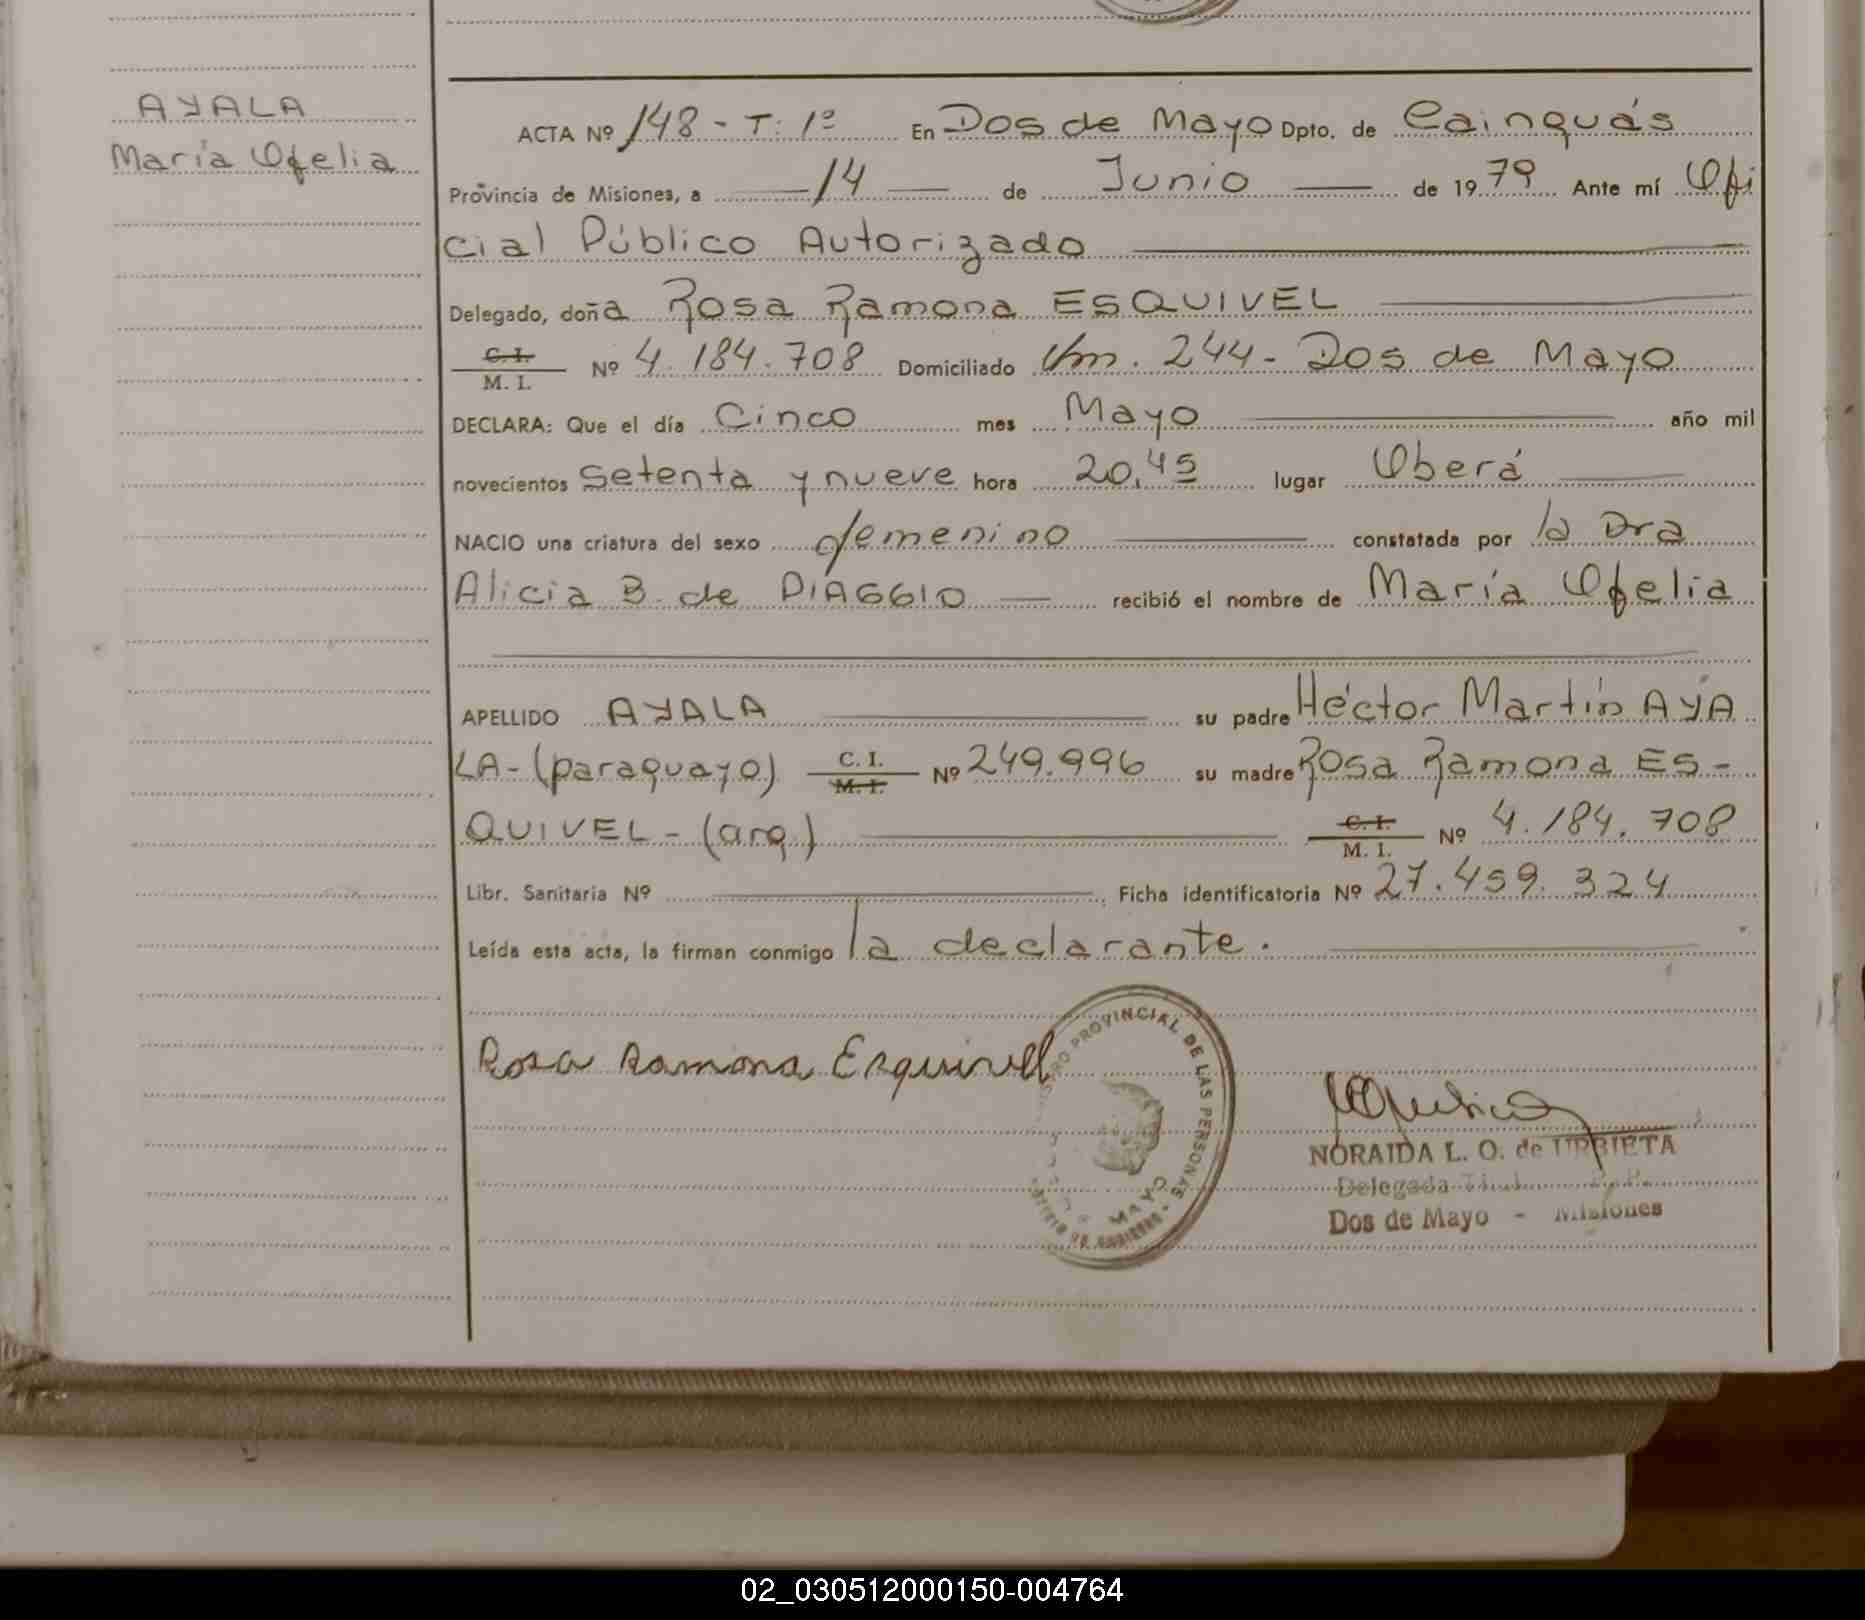 AYALA
María Ofelia
ACTA Nº 148 - T: 1º En Dos de Mayo Dpto. de Cainguás
Provincia de Misiones, a 14 de Junio de 1979 Ante mí Ofi
cial Público Autorizado
Delegado, doña Rosa Ramona ESQUIVEL
C. I.
M. I. Nº 4.184.708 Domiciliado Km. 244 - Dos de Mayo
DECLARA: Que el día Cinco mes Mayo año mil
novecientos setenta y nueve hora 20,45 lugar Oberá
NACIO una criatura del sexo femenino constatada por la Dra
Alicia B. de PIAGGIO recibió el nombre de María Ofelia
APELLIDO AYALA su padre Héctor Martín AYA
LA - (paraguayo) C. I. M. I. Nº 249.996 su madre Rosa Ramona ES-
QUIVEL - (arg.) C. I. M. I. Nº 4.184.708
Libr. Sanitaria Nº Ficha identificatoria Nº 27.459.324
Leída esta acta, la firman conmigo la declarante.
Rosa Ramona Esquivel
PROVINCIAL DE LAS PERSONAS
MAYO
NORAIDA L. O. de URBIETA
Delegada
Dos de Mayo - Misiones
02_030512000150-004764